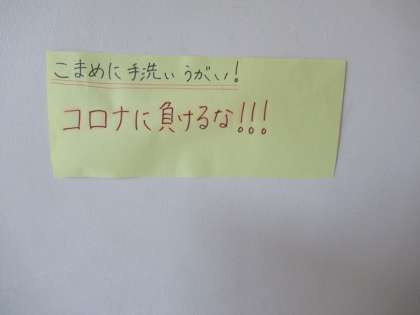 こまめに手洗い うがい!
コロナに負けるな!!!